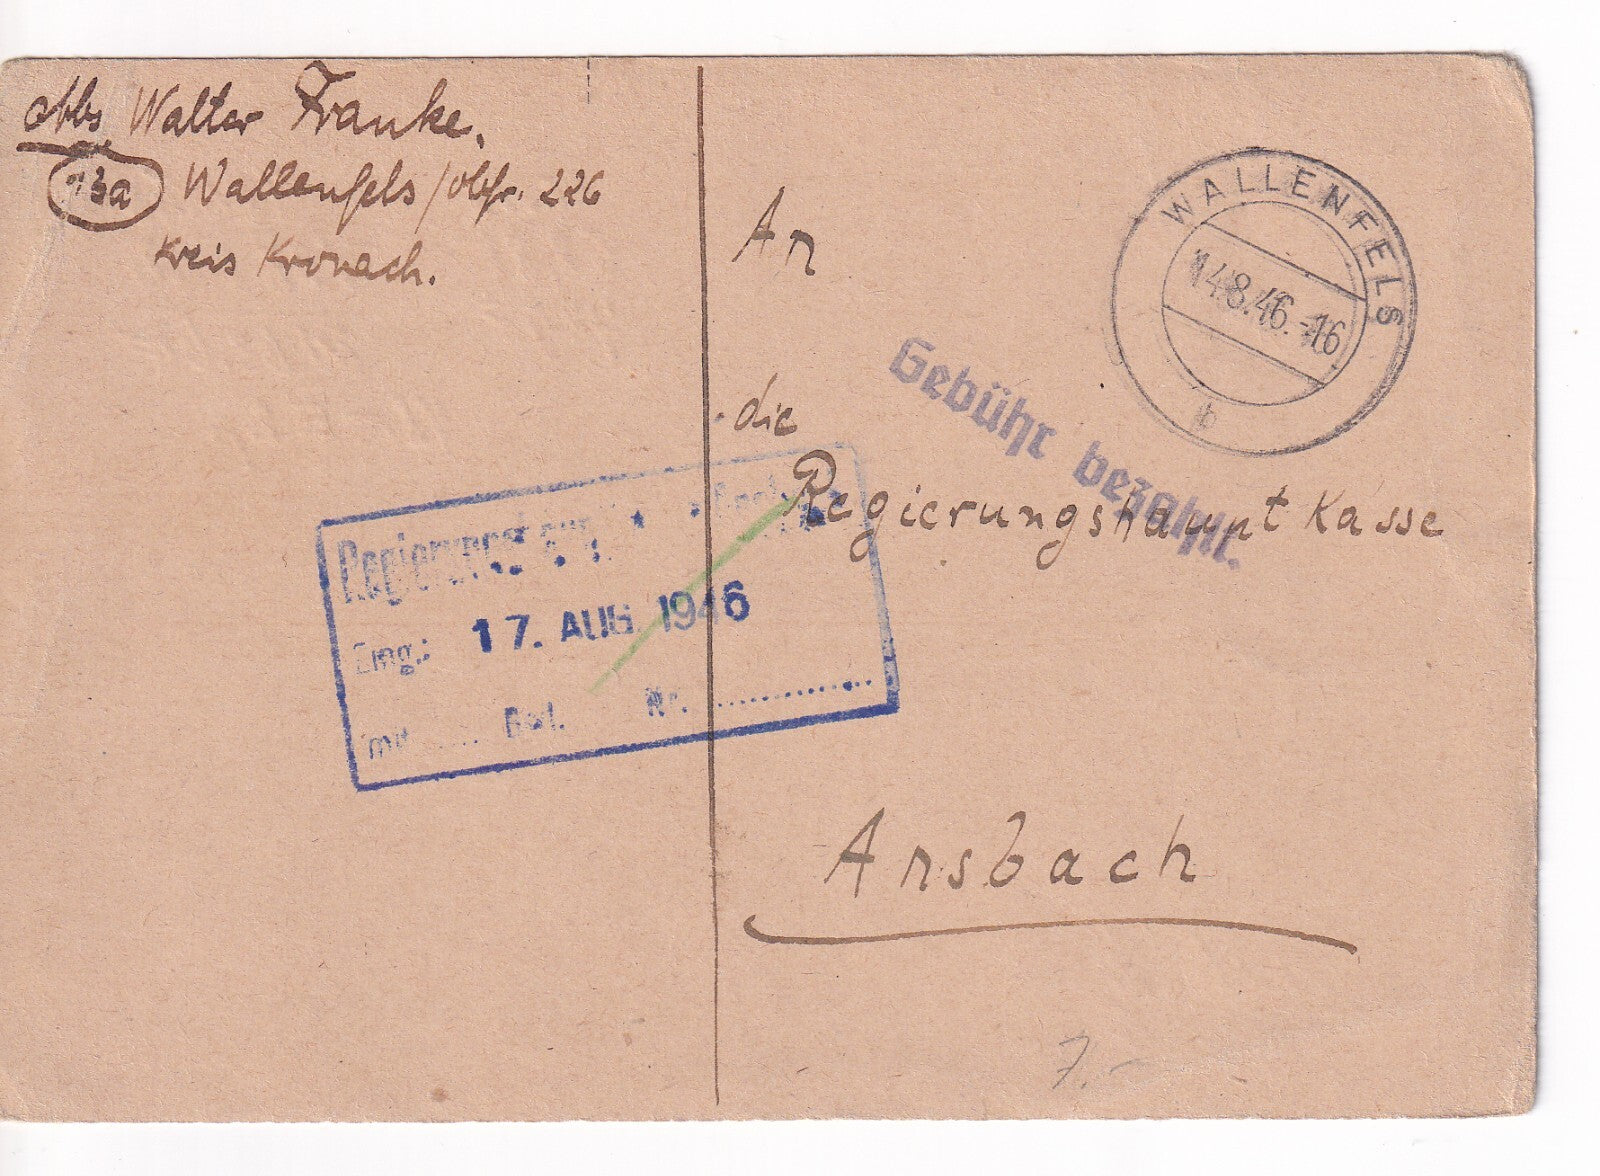 Abs. Walter Franke.
13a Wallenfels/Obfr. 226
Kreis Kronach.
An
die
Regierungshauptkasse
Ansbach
WALLENFELS
14.8.46.-16
b
Gebühr bezahlt.
Regierungshaupt
Eing.: 17. AUG. 1946
mit ...... Beil. Nr. ..............
7.-